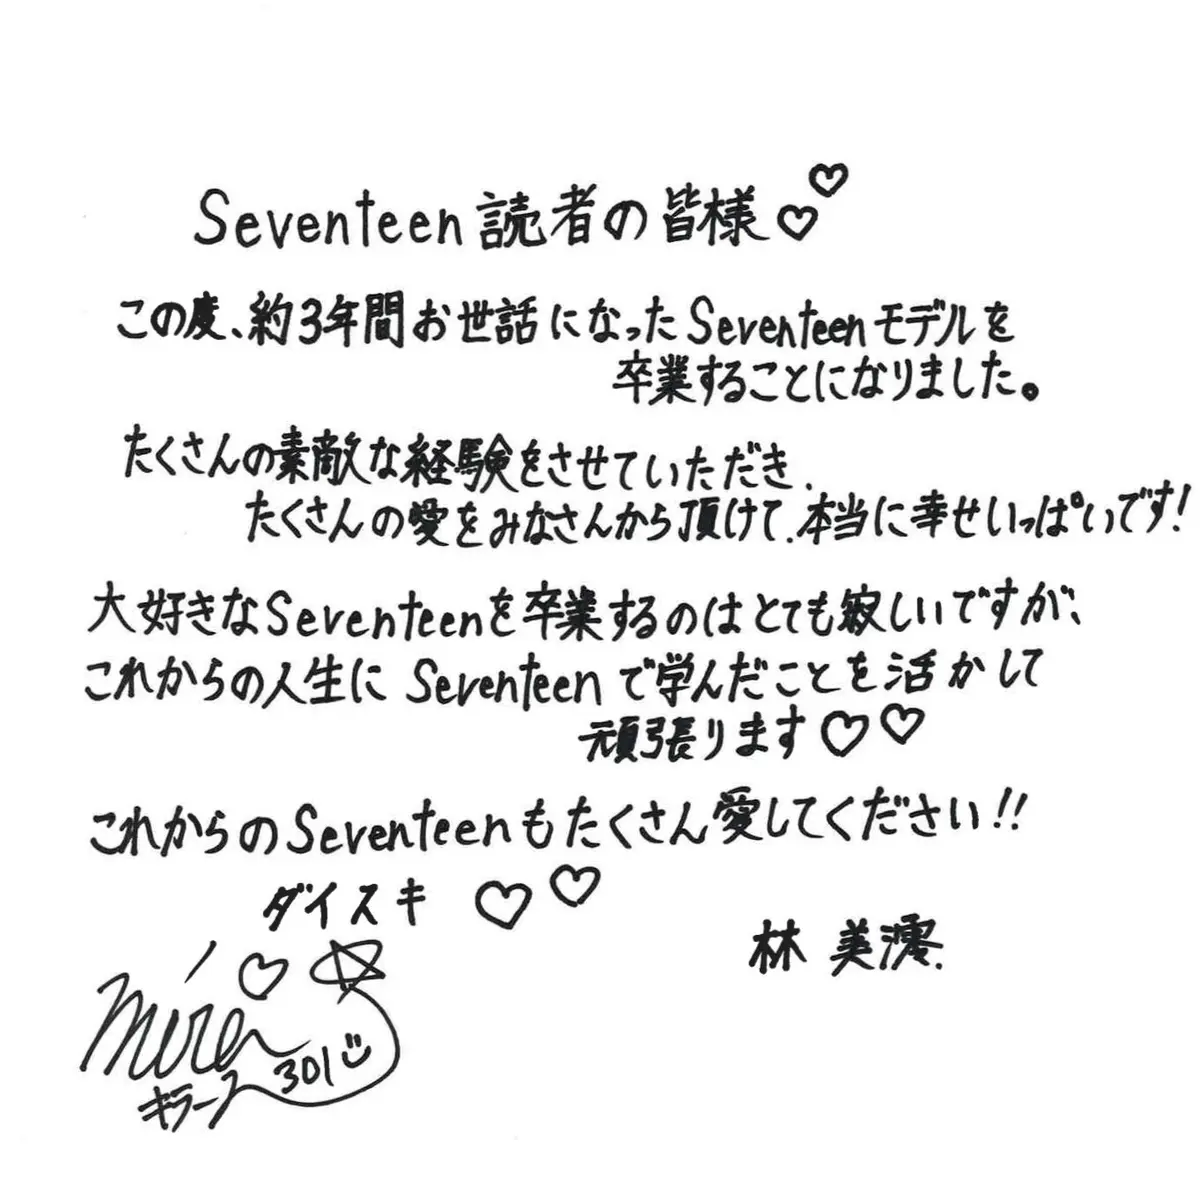 Seventeen読者の皆様♡♡
この度、約3年間お世話になったSeventeenモデルを
卒業することになりました。
たくさんの素敵な経験をさせていただき、
たくさんの愛をみなさんから頂けて、本当に幸せいっぱいです!
大好きなSeventeenを卒業するのはとても寂しいですが、
これからの人生にSeventeenで学んだことを活かして
頑張ります♡♡
これからのSeventeenもたくさん愛してください!!
ダイスキ ♡♡
林 美澪
301